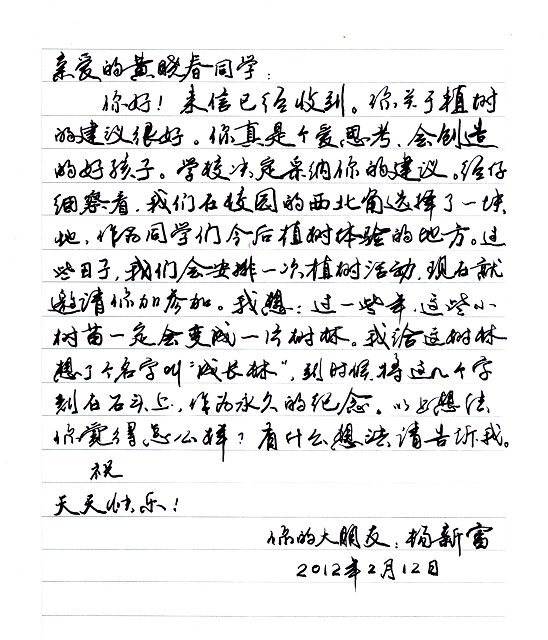 亲爱的黄晓春同学:
你好!来信已经收到。你关于植树
的建议很好。你真是个爱思考、会创造
的好孩子。学校决定采纳你的建议。经仔
细察看,我们在校园的西北角选择了一块
地,作为同学们今后植树体验的地方。过
些日子,我们会安排一次植树活动,现在就
邀请你加参加。我想:过一些年,这些小
树苗一定会变成一片树林。我给这树林
想了个名字叫“成长林”,到时候将这几个字
刻在石头上,作为永久的纪念。以上想法
你觉得怎么样?有什么想法请告诉我。
祝
天天快乐!
你的大朋友:杨新富
2012年2月12日